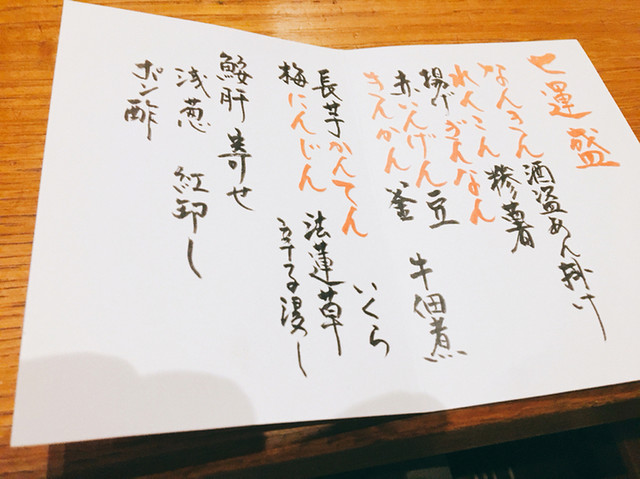 七運盛
なんきん酒盗あん掛け
れんこん糝薯
揚げぎんなん
赤いんげん豆 牛佃煮
きんかん釜 いくら
長芋かんてん
梅にんじん
法蓮草
浸し
鮟肝寄せ
浅葱 紅卸し
ポン酢